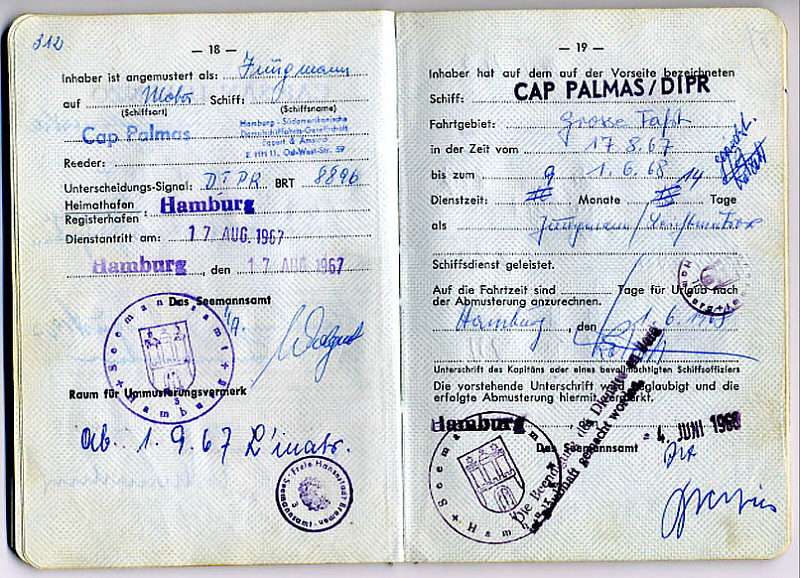 312
— 18 —
Inhaber ist angemustert als: Jungmann
auf Motor Schiff:
(Schiffsart) (Schiffsname)
Cap Palmas
Hamburg - Südamerikanische
Dampfschifffahrts-Gesellschaft
Eggert & Amsinck
2 HH 11, Ost-West-Str. 59
Reeder:
Unterscheidungs-Signal: DIPR BRT 8896
Heimathafen
Registerhafen: Hamburg
Dienstantritt am: 17 AUG. 1967
Hamburg, den 17 AUG 1967
Das Seemannsamt
Seemannsamt Hamburg
Raum für Ummusterungsvermerk
ab. 1.9.67 L'matr.
Freie Hansestadt Bremen
Seemannsamt
— 19 —
Inhaber hat auf dem auf der Vorseite bezeichneten
Schiff: CAP PALMAS/DIPR
Fahrtgebiet: Grosse Fahrt
in der Zeit vom 17.8.67
bis zum 1.6.68
Dienstzeit: 9 Monate 14 Tage
als Jungmann/Leichtmatrose
Schiffsdienst geleistet.
Auf die Fahrtzeit sind Tage für Urlaub nach
der Abmusterung anzurechnen.
Hamburg, den 1.6.1968
Unterschrift des Kapitäns oder eines bevollmächtigten Schiffsoffiziers
Die vorstehende Unterschrift wird beglaubigt und die
erfolgte Abmusterung hiermit vermerkt.
Hamburg, den 4. JUNI 1968
Das Seemannsamt
Seemannsamt Hamburg
Die Beendigung des Dienstes
gemacht worden